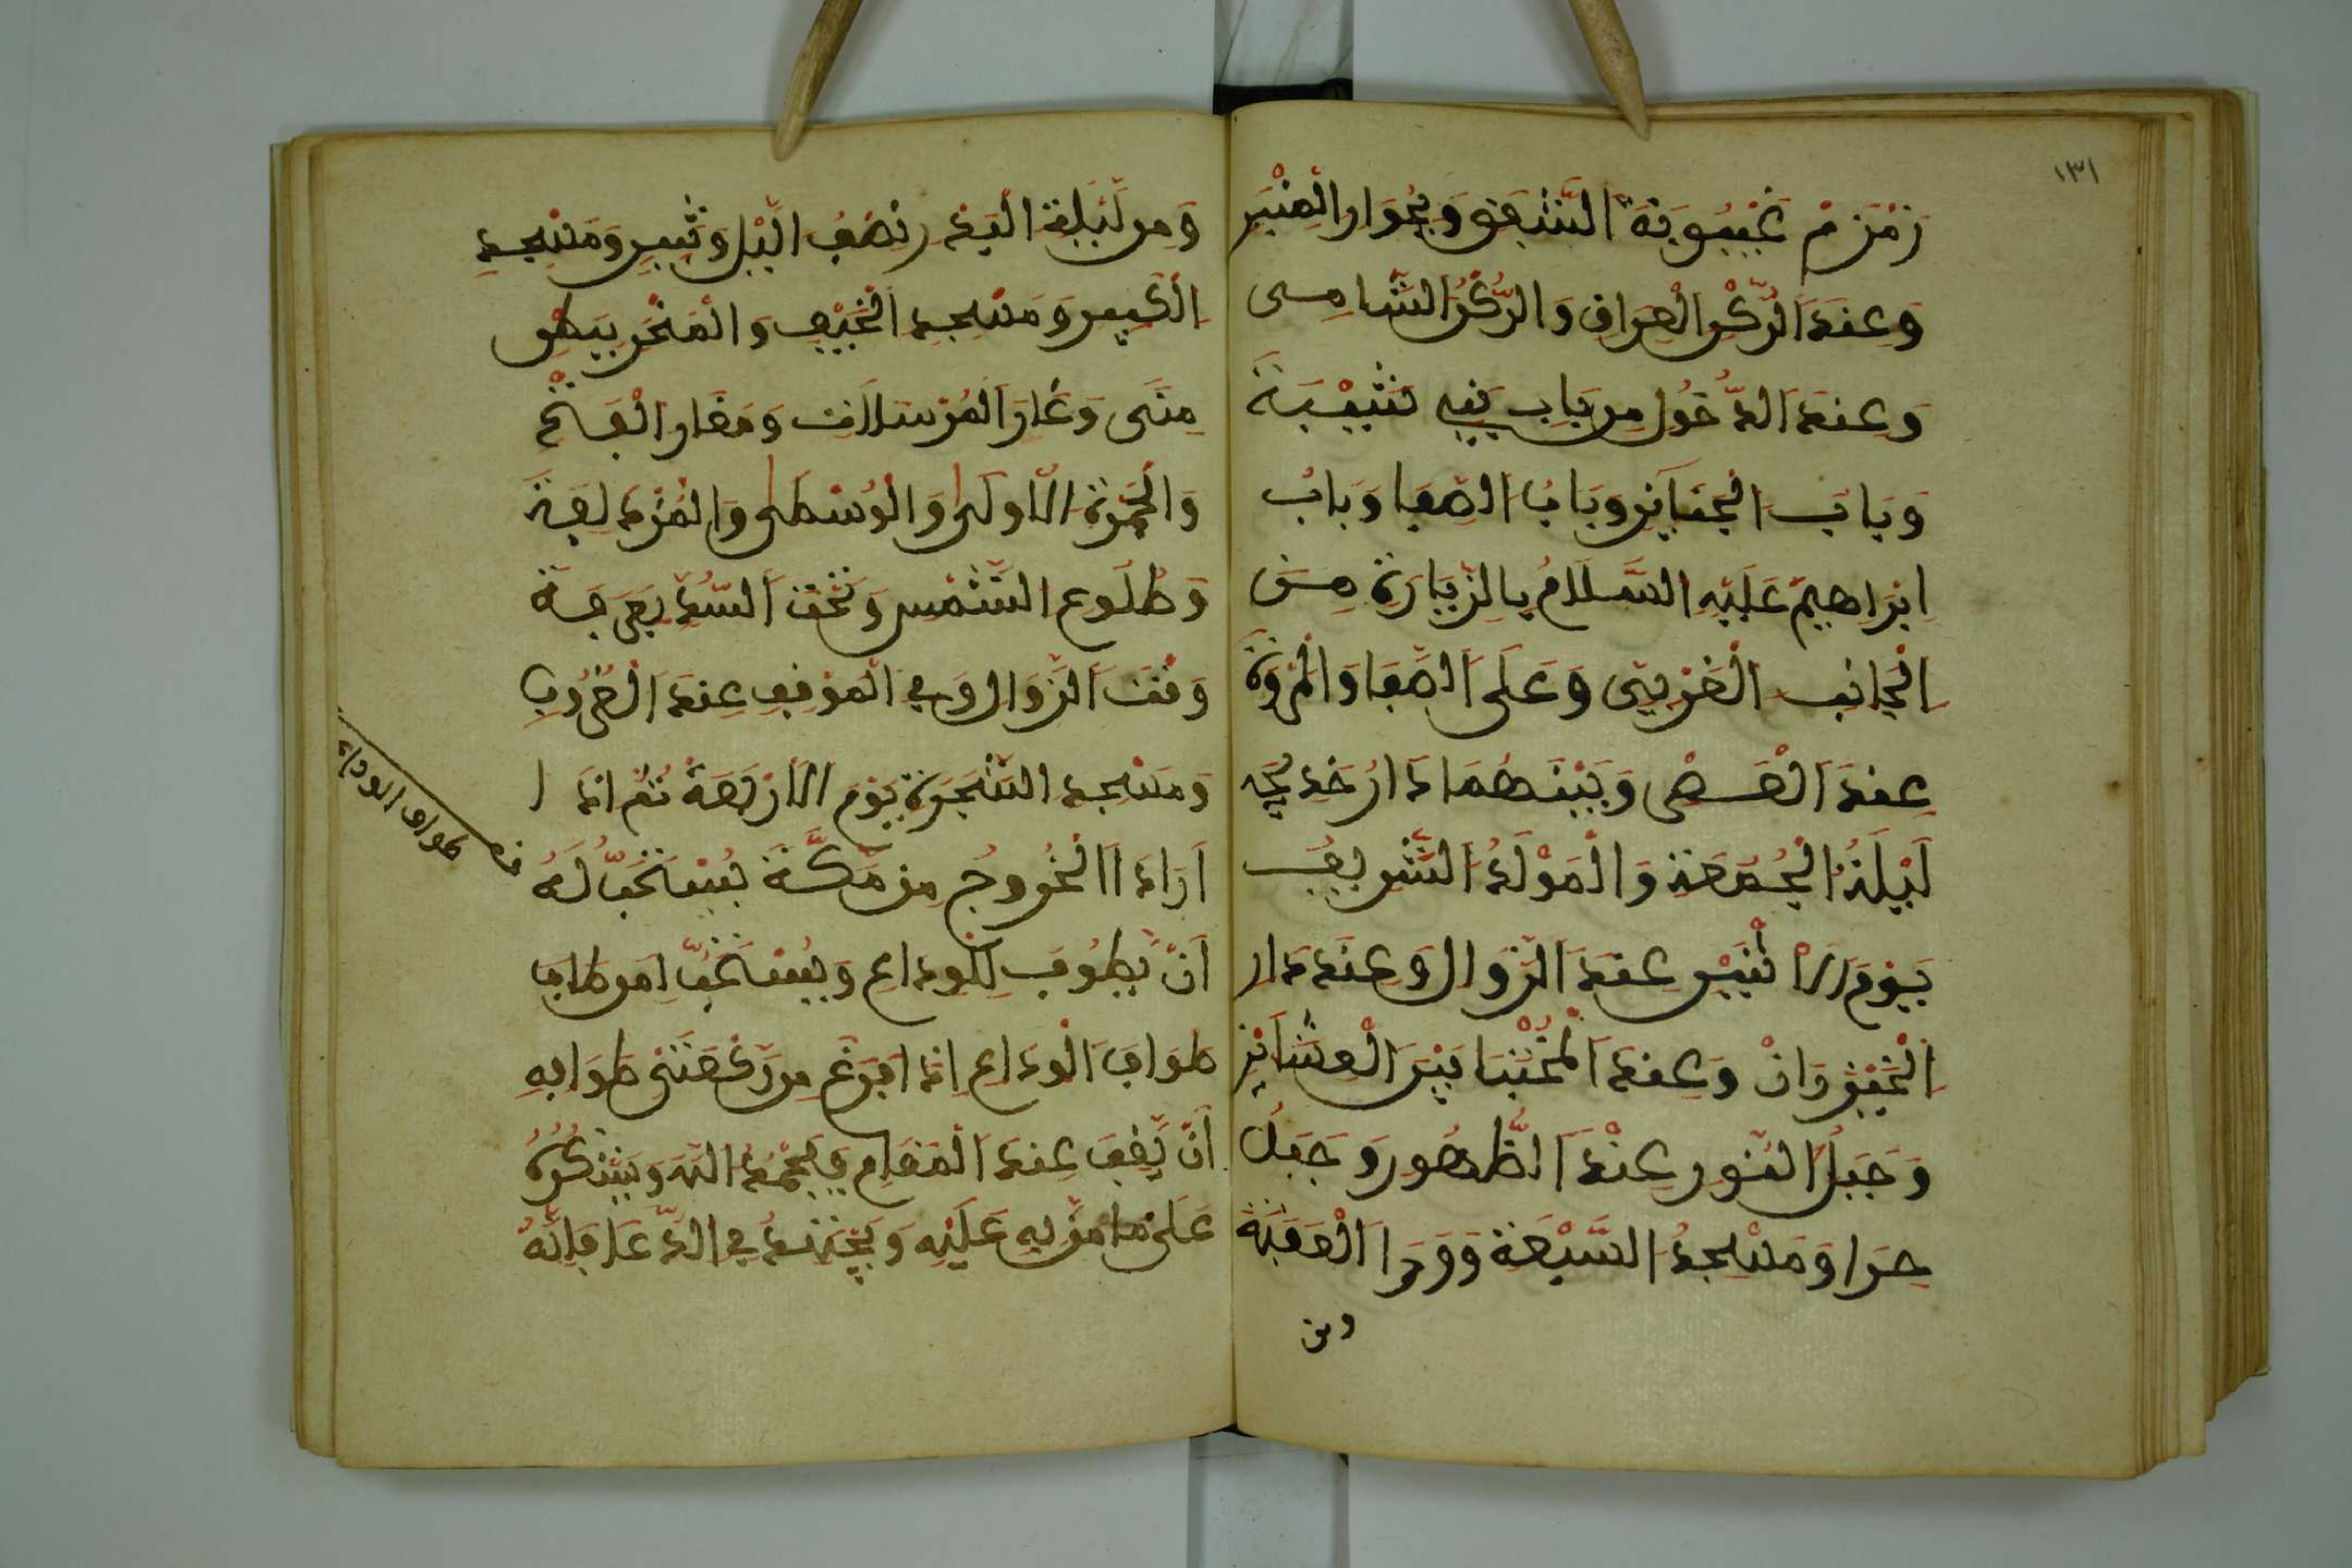 ١٣١
زَمْزَمْ غَيْبُوبَةُ الشَّفَقِ وَبِجُوَارِ الْمِنْبَر
وَعِنْدَ الرُّكْنِ الْعِرَاقِ وَالرُّكْنُ الشَّامِى
وَعِنْدَ الدُّخُولِ مِن بَابِ بَنِي شَيْبَةَ
وَبَابُ الْجَنَايِز وَبَابُ الصَّفَا وَبَابُ
ابْرَاهِيمَ عَلَيْهِ السَّلَامُ بِالزِّيَارَةِ مِن
الْجَانِبِ الْغَرْبِيّ وَعَلَى الصَّفَا وَالْمَرْوَةَ
عِندَ الْعَصْرِ وَبَيْنَهُمَا دَارُ خَدِيجَه
لَيْلَةُ الْجُمُعَة وَالْمَوْلَدُ الشَّرِيفُ
يَوْمَ الاثْنَيْنِ عِندَ الزَّوَالِ وَعِندَ دَار
الْخَيْزرَانْ وَعِندَ الْمُخْتَبَا بَيْنَ الْعِشَايْنِ
وَجَبَلُ النُّورِ عِنْدَ الظُّهُورِ وَجَبَلُ
حِرَا وَمَسْجِدُ الْبَيْعَة وَوَرَا الْعَقَبَةَ
ومن
وَمِن لَيْلَةِ الْبَدْرِ نِصْفِ الَّيْلِ وَثَبِيرٍ وَمَسْجِدِ
الْكَبِيرِ وَمَسْجِدِ الْخَيْفِ وَالْمَنْحَرِ بِبَطْنِ
مِنَى وَغَارِ الْمُرْسَلَاتِ وَمَغَارِ الْفَتْحِ
وَالْجَمْرَةِ الْاولَى وَالْوُسْطَى وَالْمُزْدَلِفَةَ
وَطُلُوعِ الشَّمْسِ وَتَحْتَ السِّدْرِ بِعَرَفَةَ
وَقْتَ الزَّوَالِ وَفِي الْمَوْقِفِ عِندَ الْغُرُوبِ
وَمَسْجِدِ الشَّجَرَةِ يَوْمَ الْارْبَعَةُ ثُمَّ اذَا ا
اَرَادَ الْخُرُوجُ مِن مَكَّةَ يُسْتَحَبُّ لَهُ
اَنْ يَّطُوفَ لِلْوِدَاعِ وَيُسْتَحَبُّ لِمَن طَافَ
طَوَافَ الْوَدَاعِ اِذَا فَرَغَ مِن رَكْعَتَيْ طَوَافِهِ
اَنْ يَّقِفَ عِندَ الْمَقَامِ وَيَحْمَدُ اللهَ وَيَشْكُرُهُ
عَلَى مَا مَنَّ بِهِ عَلَيْهِ وَيَجْتَهِدُ فِي الدُّعَا فَاِنَّهُ
طواف الوداع